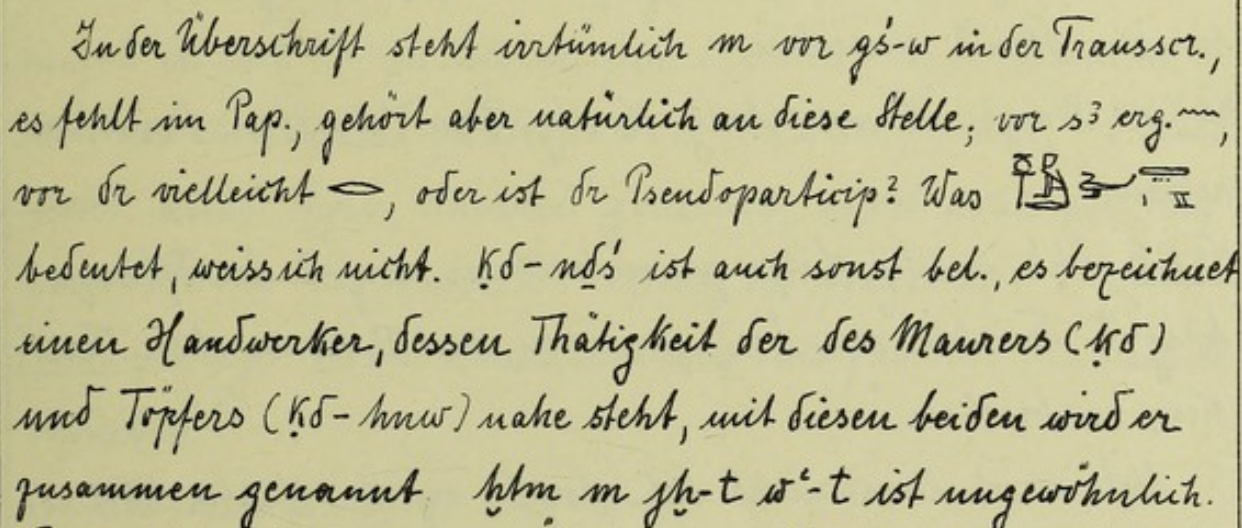 In der Überschrift steht irrtümlich m vor gś-w in der Transscr.,
es fehlt im Pap., gehört aber natürlich an diese Stelle; vor s³ erg. 𓈖,
vor dr vielleicht 𓂋, oder ist dr Pseudoparticip? Was
bedeutet, weiss ich nicht. ḳd-nḏś ist auch sonst bel., es bezeichnet
einen Handwerker, dessen Thätigkeit der des Maurers (ḳd)
und Töpfers (ḳd-hnw) nahe steht, mit diesen beiden wird er
zusammen genannt ḫtm m jḫ-t wꜥ-t ist ungewöhnlich.